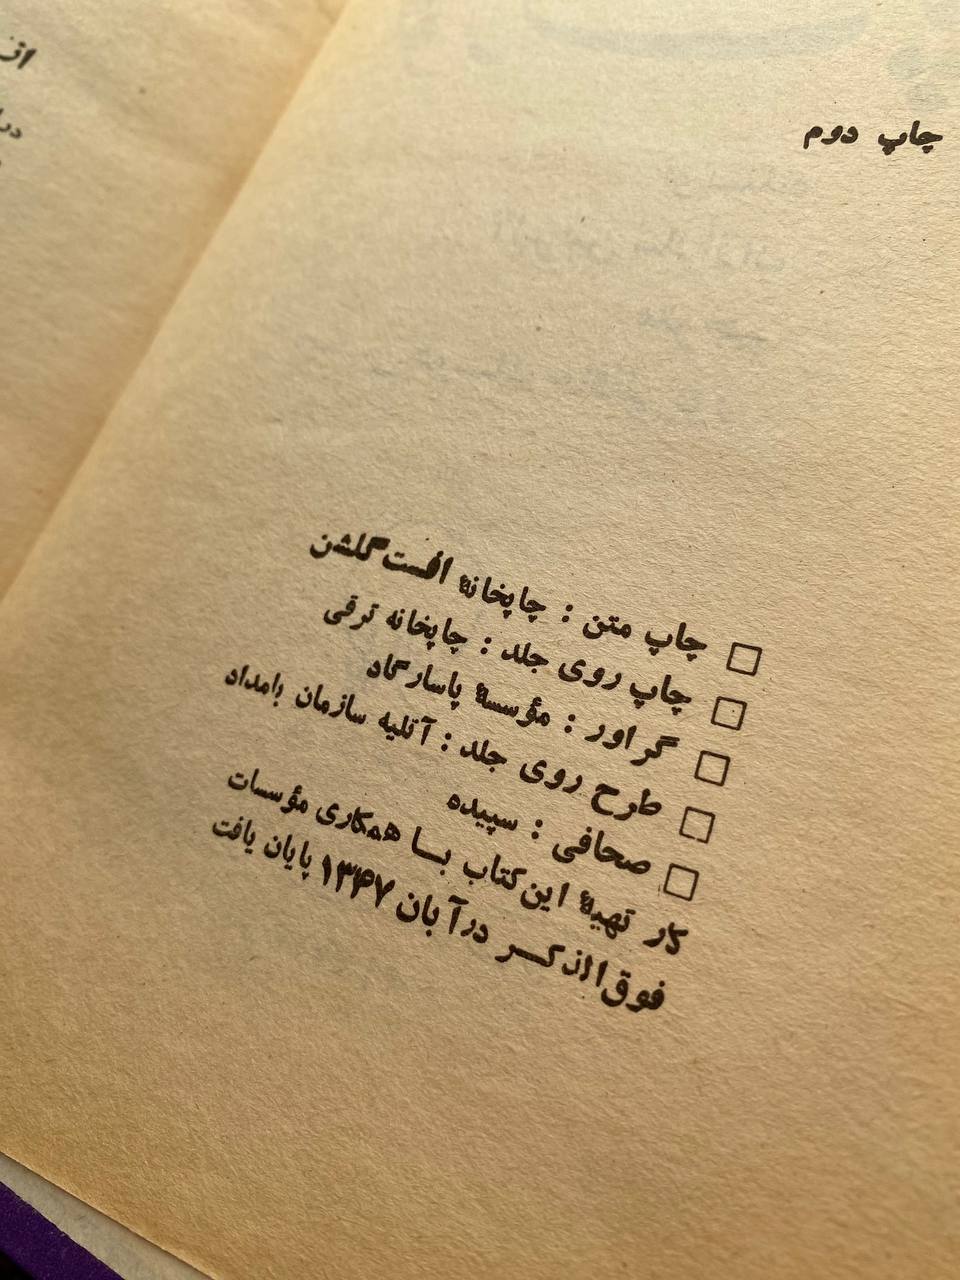 چاپ دوم
□ چاپ متن : چاپخانهٔ افست گلشن
□ چاپ روی جلد : چاپخانه ترقی
□ گراور : مؤسسهٔ پاسارگاد
□ طرح روی جلد : آتلیه سازمان بامداد
□ صحافی : سپیده
کار تهیهٔ این کتاب بـا همکاری مؤسسات
فوق‌الذکـر در آبان ۱۳۴۷ پایان یافت